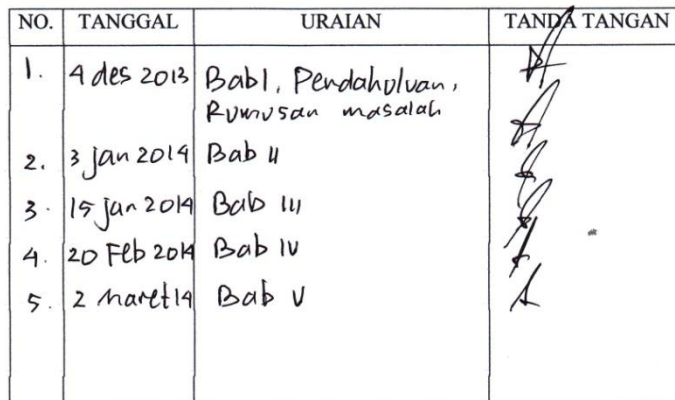 NO. TANGGAL URAIAN TANDA TANGAN
1. 4 des 2013 Bab I, Pendahuluan,
Rumusan masalah
2. 3 jan 2014 Bab II
3. 15 jan 2014 Bab III
4. 20 Feb 2014 Bab IV
5. 2 maret 14 Bab V